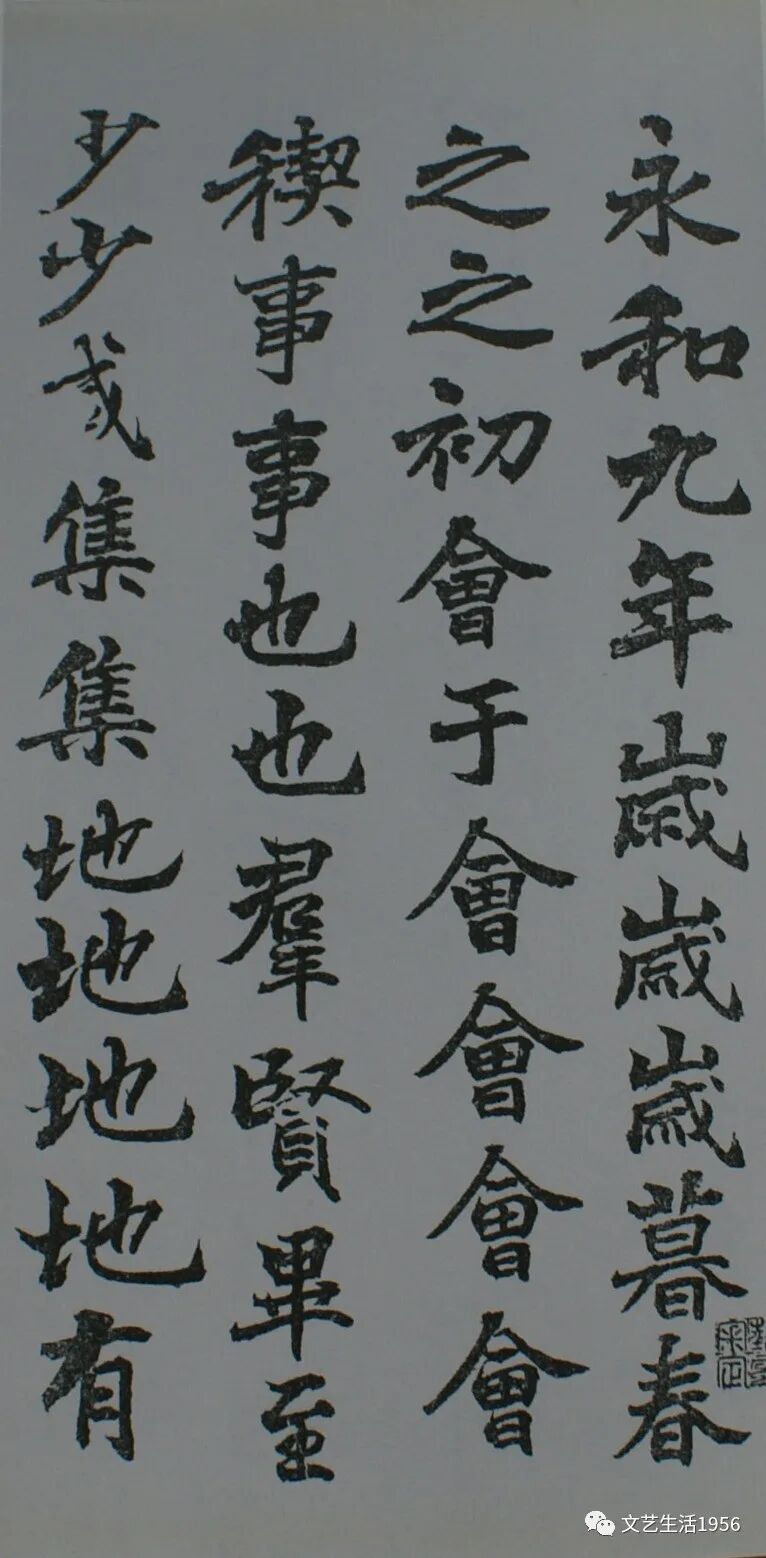 永和九年歲歲歲暮春
之之初會于會會會會
稧事事也也羣賢畢至
少少咸集集地地地地有
文艺生活1956